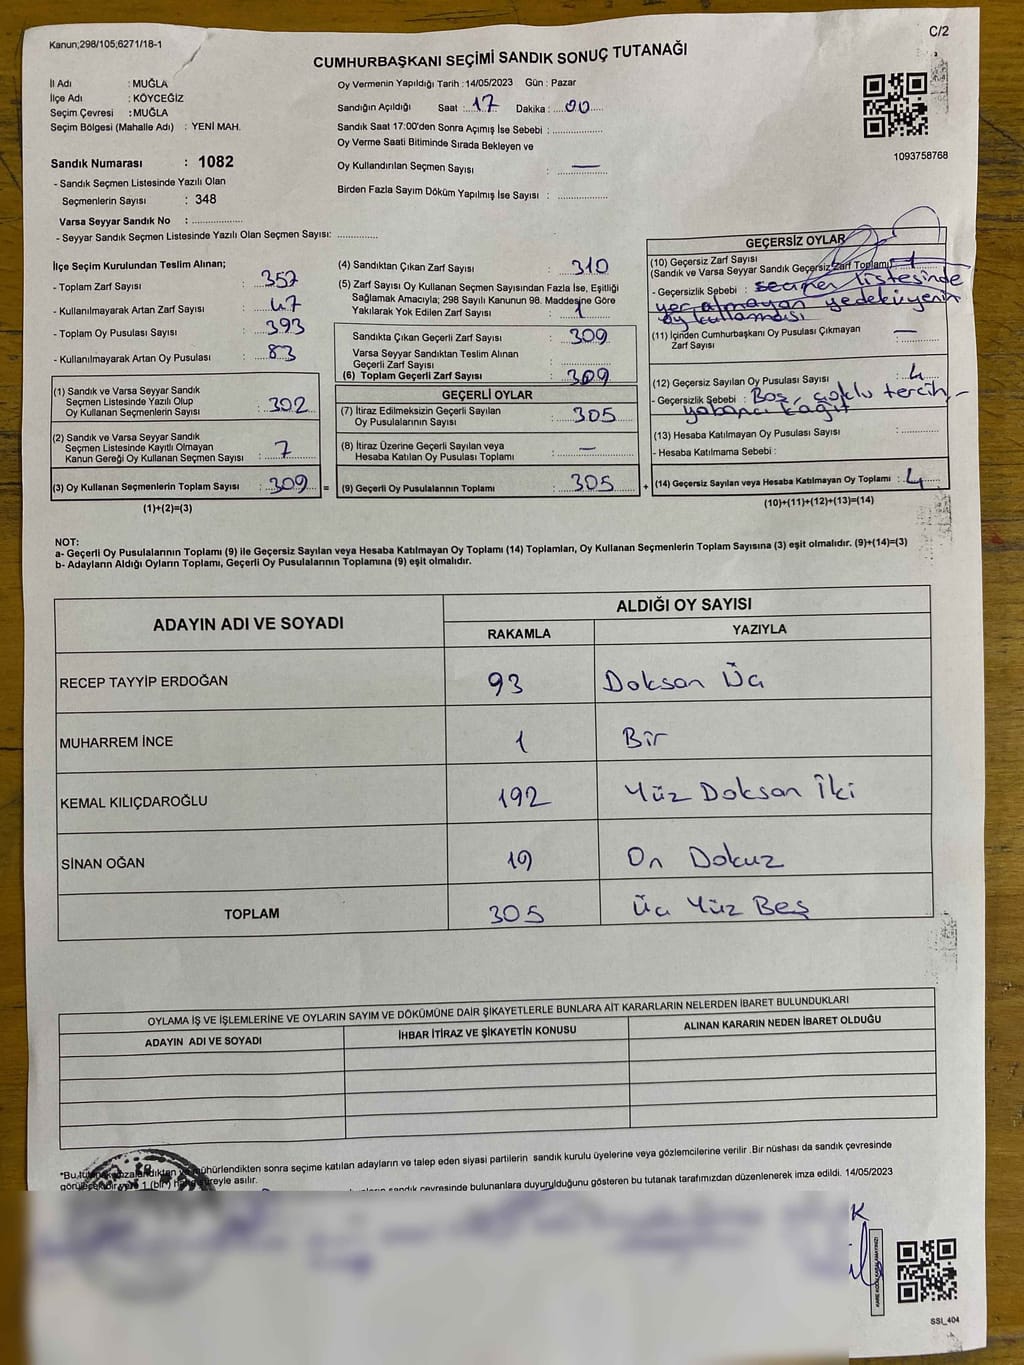 Kanun;298/105;6271/18-1
C/2
CUMHURBAŞKANI SEÇİMİ SANDIK SONUÇ TUTANAĞI
İl Adı : MUĞLA
İlçe Adı : KÖYCEĞİZ
Seçim Çevresi : MUĞLA
Seçim Bölgesi (Mahalle Adı) : YENİ MAH.
Sandık Numarası : 1082
- Sandık Seçmen Listesinde Yazılı Olan
Seçmenlerin Sayısı : 348
Varsa Seyyar Sandık No : ..................
- Seyyar Sandık Seçmen Listesinde Yazılı Olan Seçmen Sayısı: ..............
Oy Vermenin Yapıldığı Tarih : 14/05/2023 Gün : Pazar
Sandığın Açıldığı Saat : 17 Dakika : 00
Sandık Saat 17:00'den Sonra Açımış İse Sebebi : ..................
Oy Verme Saati Bitiminde Sırada Bekleyen ve
Oy Kullandırılan Seçmen Sayısı : —
Birden Fazla Sayım Döküm Yapılmış İse Sayısı : ..................
1093758768
İlçe Seçim Kurulundan Teslim Alınan;
- Toplam Zarf Sayısı : 357
- Kullanılmayarak Artan Zarf Sayısı : 47
- Toplam Oy Pusulası Sayısı : 393
- Kullanılmayarak Artan Oy Pusulası : 83
(1) Sandık ve Varsa Seyyar Sandık
Seçmen Listesinde Yazılı Olup
Oy Kullanan Seçmenlerin Sayısı : 302
(2) Sandık ve Varsa Seyyar Sandık
Seçmen Listesinde Kayıtlı Olmayan
Kanun Gereği Oy Kullanan Seçmen Sayısı : 7
(3) Oy Kullanan Seçmenlerin Toplam Sayısı : 309 =
(1)+(2)=(3)
(4) Sandıktan Çıkan Zarf Sayısı : 310
(5) Zarf Sayısı Oy Kullanan Seçmen Sayısından Fazla İse, Eşitliği
Sağlamak Amacıyla; 298 Sayılı Kanunun 98. Maddesine Göre
Yakılarak Yok Edilen Zarf Sayısı : 1
Sandıkta Çıkan Geçerli Zarf Sayısı : 309
Varsa Seyyar Sandıktan Teslim Alınan
Geçerli Zarf Sayısı :
(6) Toplam Geçerli Zarf Sayısı : 309
GEÇERLİ OYLAR
(7) İtiraz Edilmeksizin Geçerli Sayılan
Oy Pusulalarının Sayısı : 305
(8) İtiraz Üzerine Geçerli Sayılan veya
Hesaba Katılan Oy Pusulası Toplamı : —
(9) Geçerli Oy Pusulalarının Toplamı : 305 +
GEÇERSİZ OYLAR
(10) Geçersiz Zarf Sayısı
(Sandık ve Varsa Seyyar Sandık Geçersiz Zarf Toplamı) 1
- Geçersizlik Sebebi : seçmen listesinde
yer almayan yedek üyenin
oy kullanması
(11) İçinden Cumhurbaşkanı Oy Pusulası Çıkmayan
Zarf Sayısı —
(12) Geçersiz Sayılan Oy Pusulası Sayısı : 4
- Geçersizlik Sebebi : Boş, çoklu tercih,-
yabancı kağıt
(13) Hesaba Katılmayan Oy Pusulası Sayısı :
- Hesaba Katılmama Sebebi :
(14) Geçersiz Sayılan veya Hesaba Katılmayan Oy Toplamı : 4
(10)+(11)+(12)+(13)=(14)
NOT:
a- Geçerli Oy Pusulalarının Toplamı (9) ile Geçersiz Sayılan veya Hesaba Katılmayan Oy Toplamı (14) Toplamları, Oy Kullanan Seçmenlerin Toplam Sayısına (3) eşit olmalıdır. (9)+(14)=(3)
b- Adayların Aldığı Oyların Toplamı, Geçerli Oy Pusulalarının Toplamına (9) eşit olmalıdır.
ADAYIN ADI VE SOYADI
ALDIĞI OY SAYISI
RAKAMLA YAZIYLA
RECEP TAYYİP ERDOĞAN 93 Doksan Üç
MUHARREM İNCE 1 Bir
KEMAL KILIÇDAROĞLU 192 Yüz Doksan İki
SİNAN OĞAN 19 On Dokuz
TOPLAM 305 Üç Yüz Beş
OYLAMA İŞ VE İŞLEMLERİNE VE OYLARIN SAYIM VE DÖKÜMÜNE DAİR ŞİKAYETLERLE BUNLARA AİT KARARLARIN NELERDEN İBARET BULUNDUKLARI
ADAYIN ADI VE SOYADI İHBAR İTİRAZ VE ŞİKAYETİN KONUSU ALINAN KARARIN NEDEN İBARET OLDUĞU
*Bu mühürlendikten sonra seçime katılan adayların ve talep eden siyasi partilerin sandık kurulu üyelerine veya gözlemcilerine verilir .Bir nüshası da sandık çevresinde
1 (bir) süreyle asılır.
sandık çevresinde bulunanlara duyurulduğunu gösteren bu tutanak tarafımızdan düzenlenerek imza edildi. 14/05/2023
SSI_404